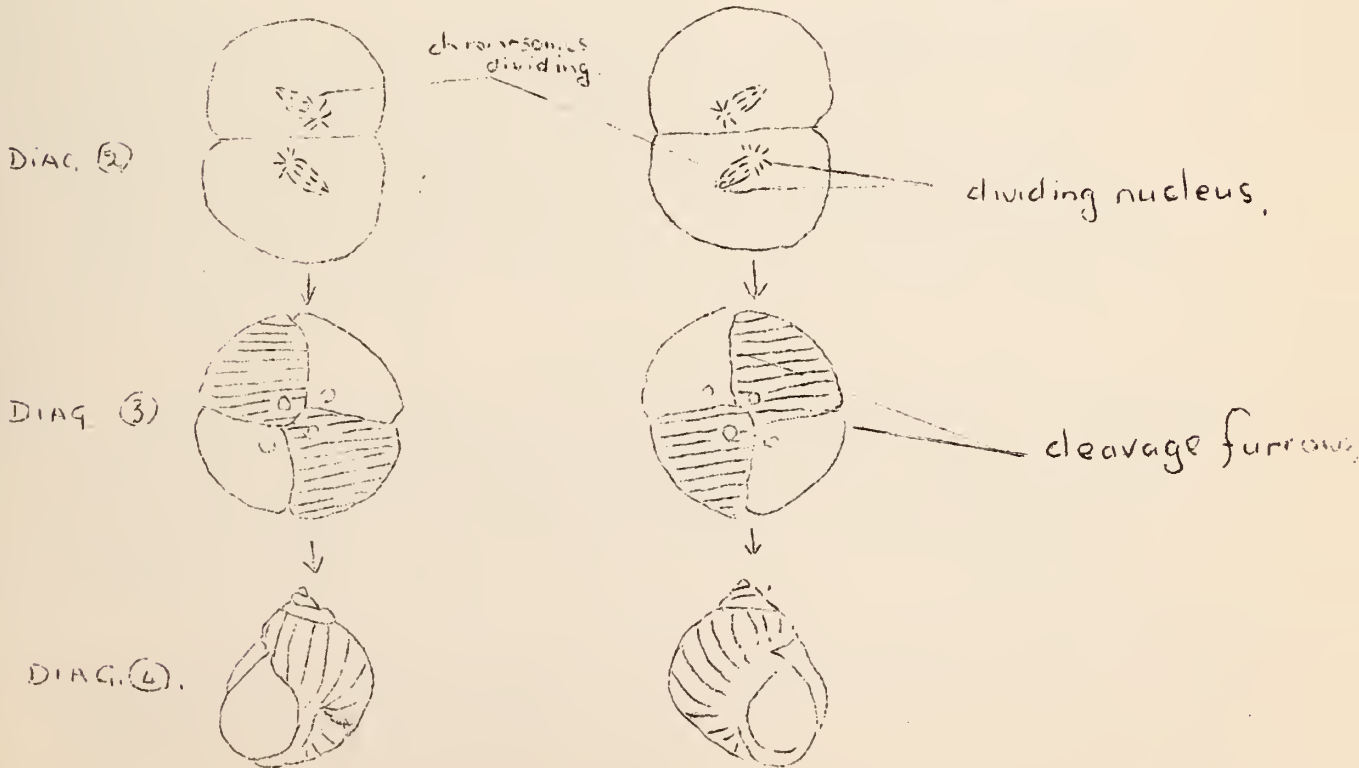 chromosomes
dividing.
DIAG. ②
dividing nucleus.
DIAG ③
cleavage furrows
DIAG. ④.